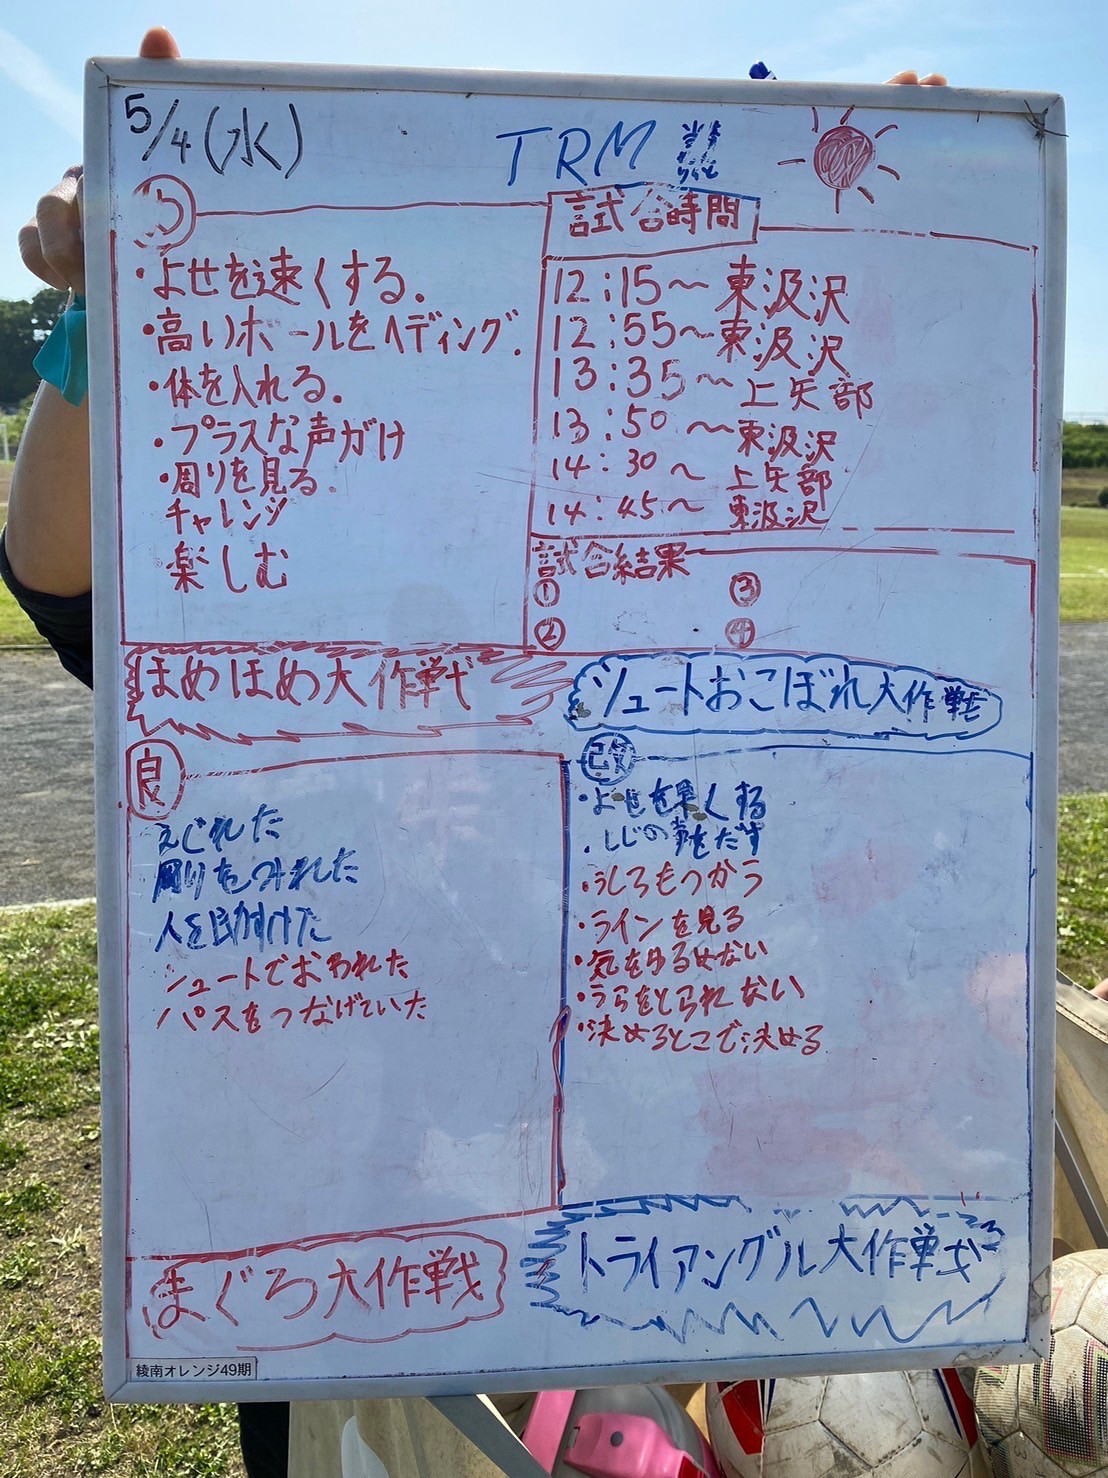 5/4(水)
TRM
・よせを速くする.
・高いボールをヘディング.
・体を入れる.
・プラスな声がけ
・周りを見る.
チャレンジ
楽しむ
試合時間
12:15〜東汲沢
12:55〜東汲沢
13:35〜上矢部
13:50〜東汲沢
14:30〜上矢部
14:45〜東汲沢
試合結果
① ③
② ④
ほめほめ大作戦
シュートおこぼれ大作戦
良
えじれた
周りをみれた
人を助けた
シュートでおわれた
パスをつなげていた
改
・よせを早くする
・しじの声をだす
・うしろもつかう
・ラインを見る
・気をゆるめない
・うらをとられない
・決めるとこで決める
まぐろ大作戦
トライアングル大作戦
綾南オレンジ49期